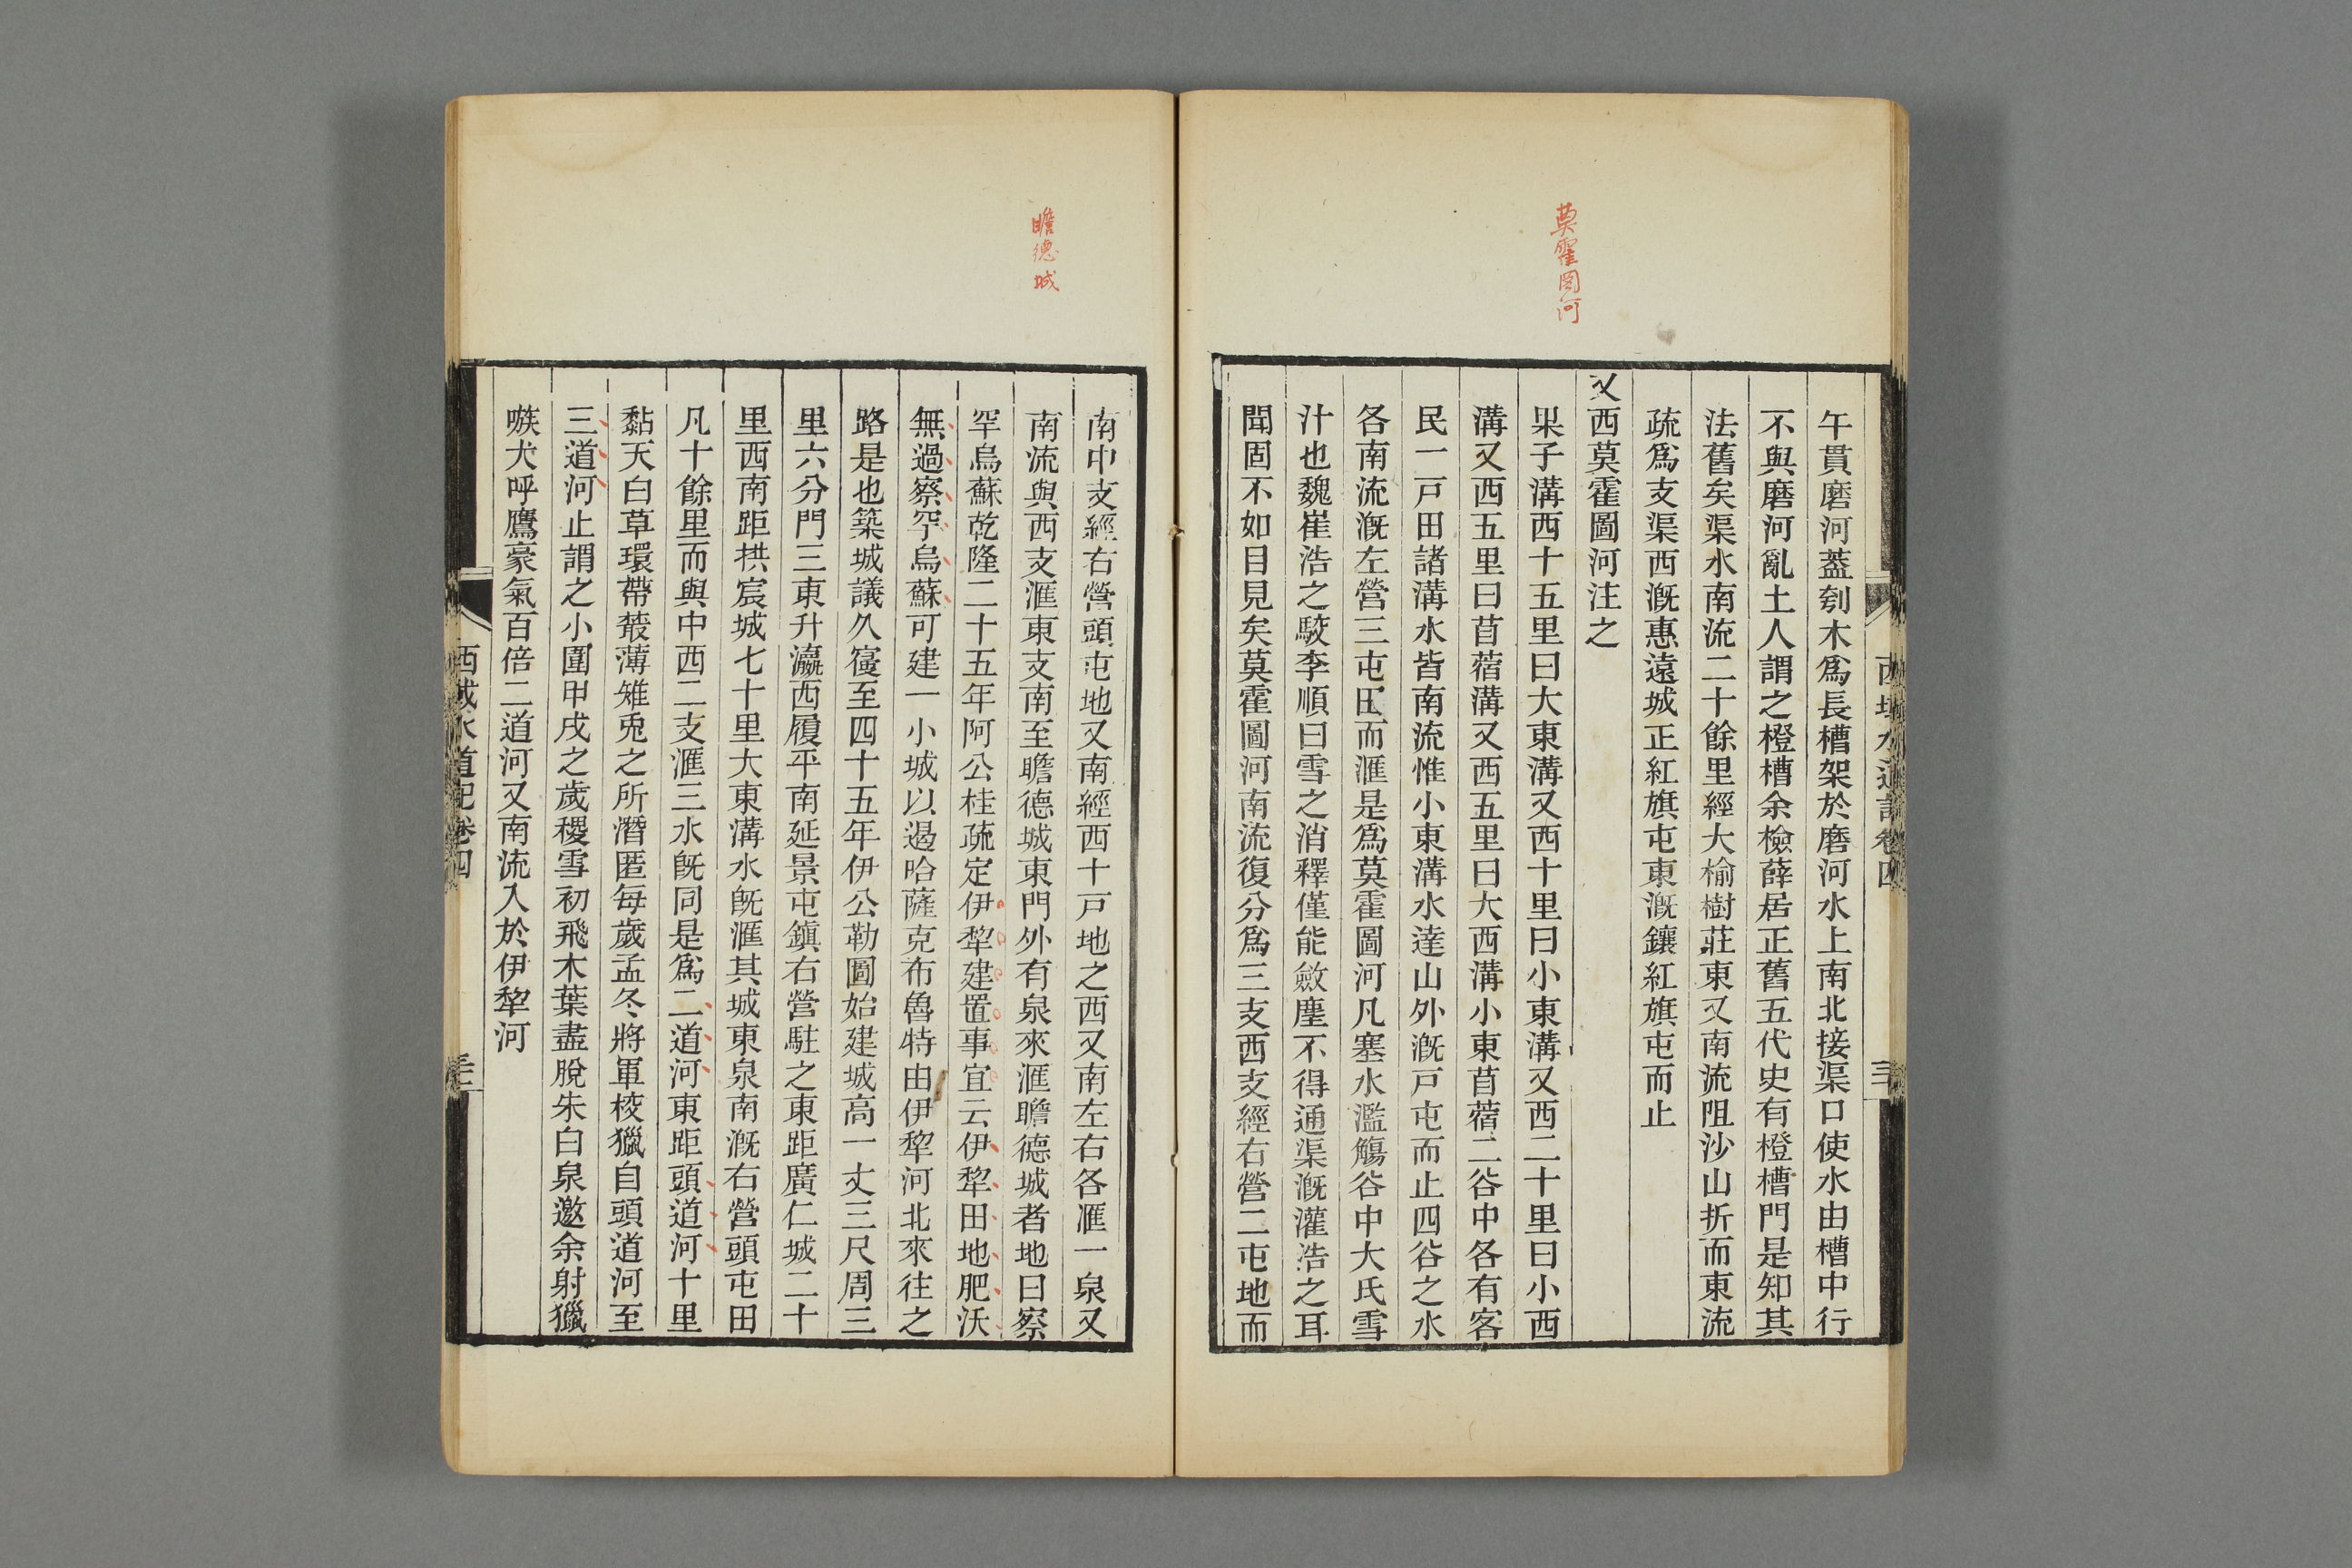 莫霍圖河
午貫磨河蓋刳木爲長槽架於磨河水上南北接渠口使水由槽中行
不與磨河亂土人謂之橙槽余檢薛居正舊五代史有橙槽門是知其
法舊矣渠水南流二十餘里經大榆樹莊東又南流阻沙山折而東流
疏爲支渠西漑惠遠城正紅旗屯東漑鑲紅旗屯而止
又西莫霍圖河注之
果子溝西十五里曰大東溝又西十里曰小東溝又西二十里曰小西
溝又西五里曰苜蓿溝又西五里曰大西溝小東苜蓿二谷中各有客
民一戸田諸溝水皆南流惟小東溝水達山外漑戸屯而止四谷之水
各南流漑左營三屯田而滙是爲莫霍圖河凡塞水濫觴谷中大氐雪
汁也魏崔浩之駮李順曰雪之消釋僅能斂塵不得通渠漑灌浩之耳
聞固不如目見矣莫霍圖河南流復分爲三支西支經右營二屯地而
西域水道記卷四
瞻德城
南中支經右營頭屯地又南經西十戸地之西又南左右各滙一泉又
南流與西支滙東支南至瞻德城東門外有泉來滙瞻德城者地曰察
罕烏蘇乾隆二十五年阿公桂疏定伊犂建置事宜云伊犂田地肥沃
無過察罕烏蘇可建一小城以遏哈薩克布魯特由伊犂河北來往之
路是也築城議久寑至四十五年伊公勒圖始建城高一丈三尺周三
里六分門三東升瀛西履平南延景屯鎮右營駐之東距廣仁城二十
里西南距拱宸城七十里大東溝水旣滙其城東泉南漑右營頭屯田
凡十餘里而與中西二支滙三水旣同是爲二道河東距頭道河十里
黏天白草環帶蘩薄雉兎之所潛匿每歲孟冬將軍校獵自頭道河至
三道河止謂之小圍甲戌之歲稷雪初飛木葉盡脫朱白泉邀余射獵
嗾犬呼鷹豪氣百倍二道河又南流入於伊犂河
西域水道記卷四